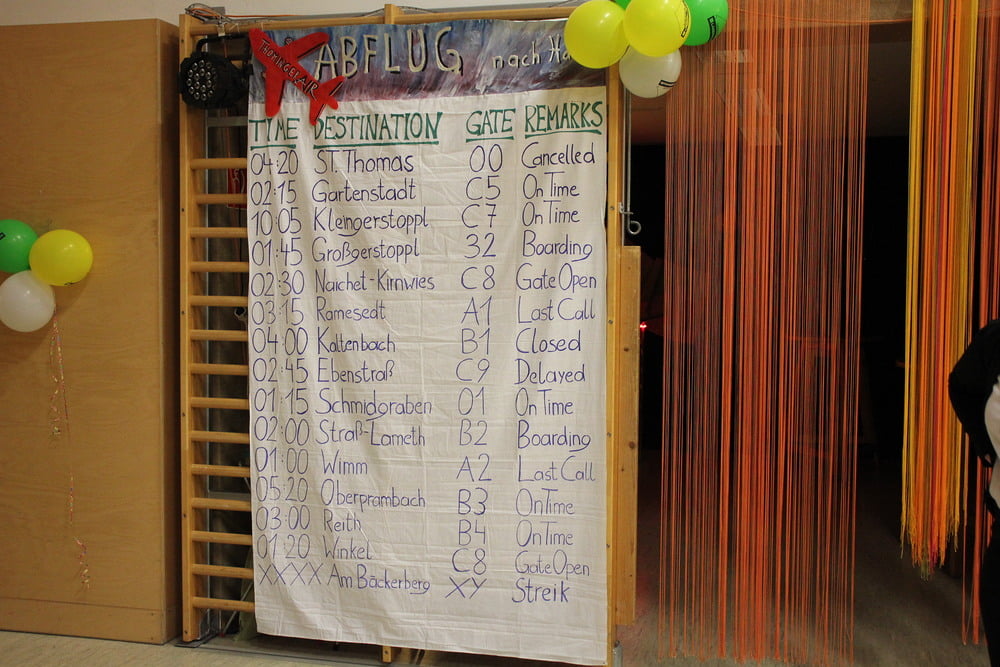 THOMINGBLAIR
ABFLUG nach
TIME DESTINATION GATE REMARKS
04:20 ST. Thomas 00 Cancelled
02:15 Gartenstadt C5 On Time
10:05 Kleingerstoppl C7 On Time
01:45 Großgerstoppl 32 Boarding
02:30 Naichet-Kirnwies C8 Gate Open
03:15 Ramesedt A1 Last Call
04:00 Kaltenbach B1 Closed
02:45 Ebenstraß C9 Delayed
01:15 Schmidgraben 01 On Time
02:00 Straß-Lameth B2 Boarding
01:00 Wimm A2 Last Call
05:20 Oberprambach B3 On Time
03:00 Reith B4 On Time
01:20 Winkel C8 Gate Open
XXXX Am Bäckerberg XY Streik